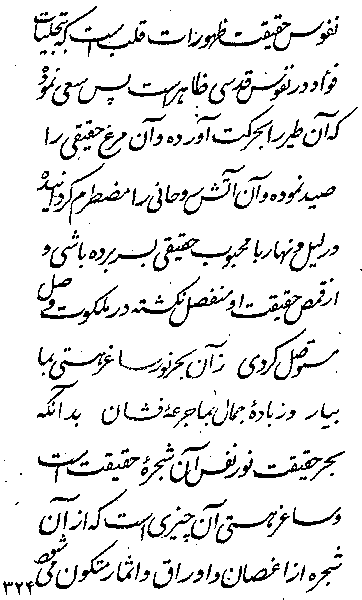 نفوس حقیقت ظهورات قلب است که تجلیات
فواد در نفوس قدسی ظاهر است پس سعی نموده
که آن طیر را بحرکت آورده و آن مرغ حقیقی را
صید نموده و آن آتش روحانی را مضطرم گردانیده
در لیل و نهار با محبوب حقیقی بسر برده باشی و
از قمص حقیقت او منفصل نگشته در ملکوت وصل
متوصل گردی زآن بحر نور ساغر هستی بما
بیار وز بادهٔ جمال بما جرعه فشان بدانکه
بحر حقیقت نور نفس آن شجرهٔ حقیقت است
و ساغر هستی آن چیزی است که از آن
شجره از اغصان و اوراق و اثمار متکون می شود
۳۲۴